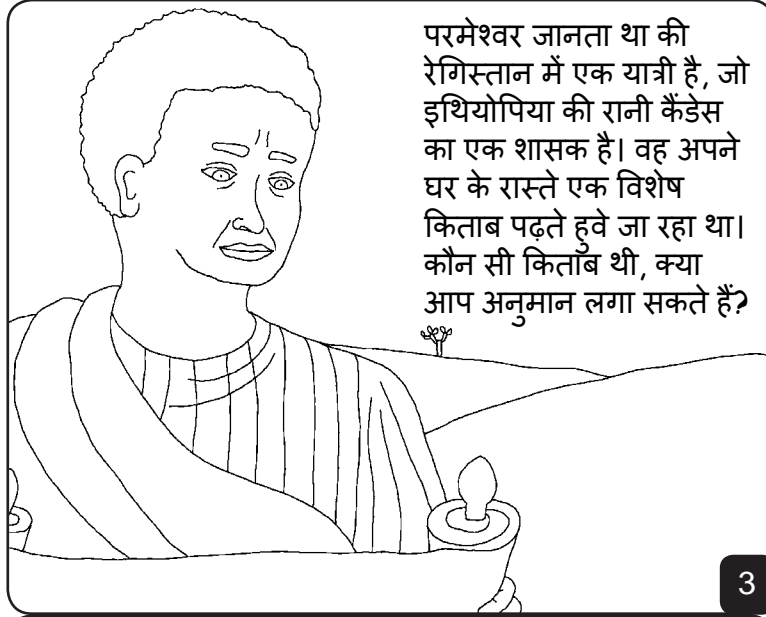 परमेश्वर जानता था की
रेगिस्तान में एक यात्री है, जो
इथियोपिया की रानी कैंडेस
का एक शासक है। वह अपने
घर के रास्ते एक विशेष
किताब पढ़ते हुवे जा रहा था।
कौन सी किताब थी, क्या
आप अनुमान लगा सकते हैं?
3